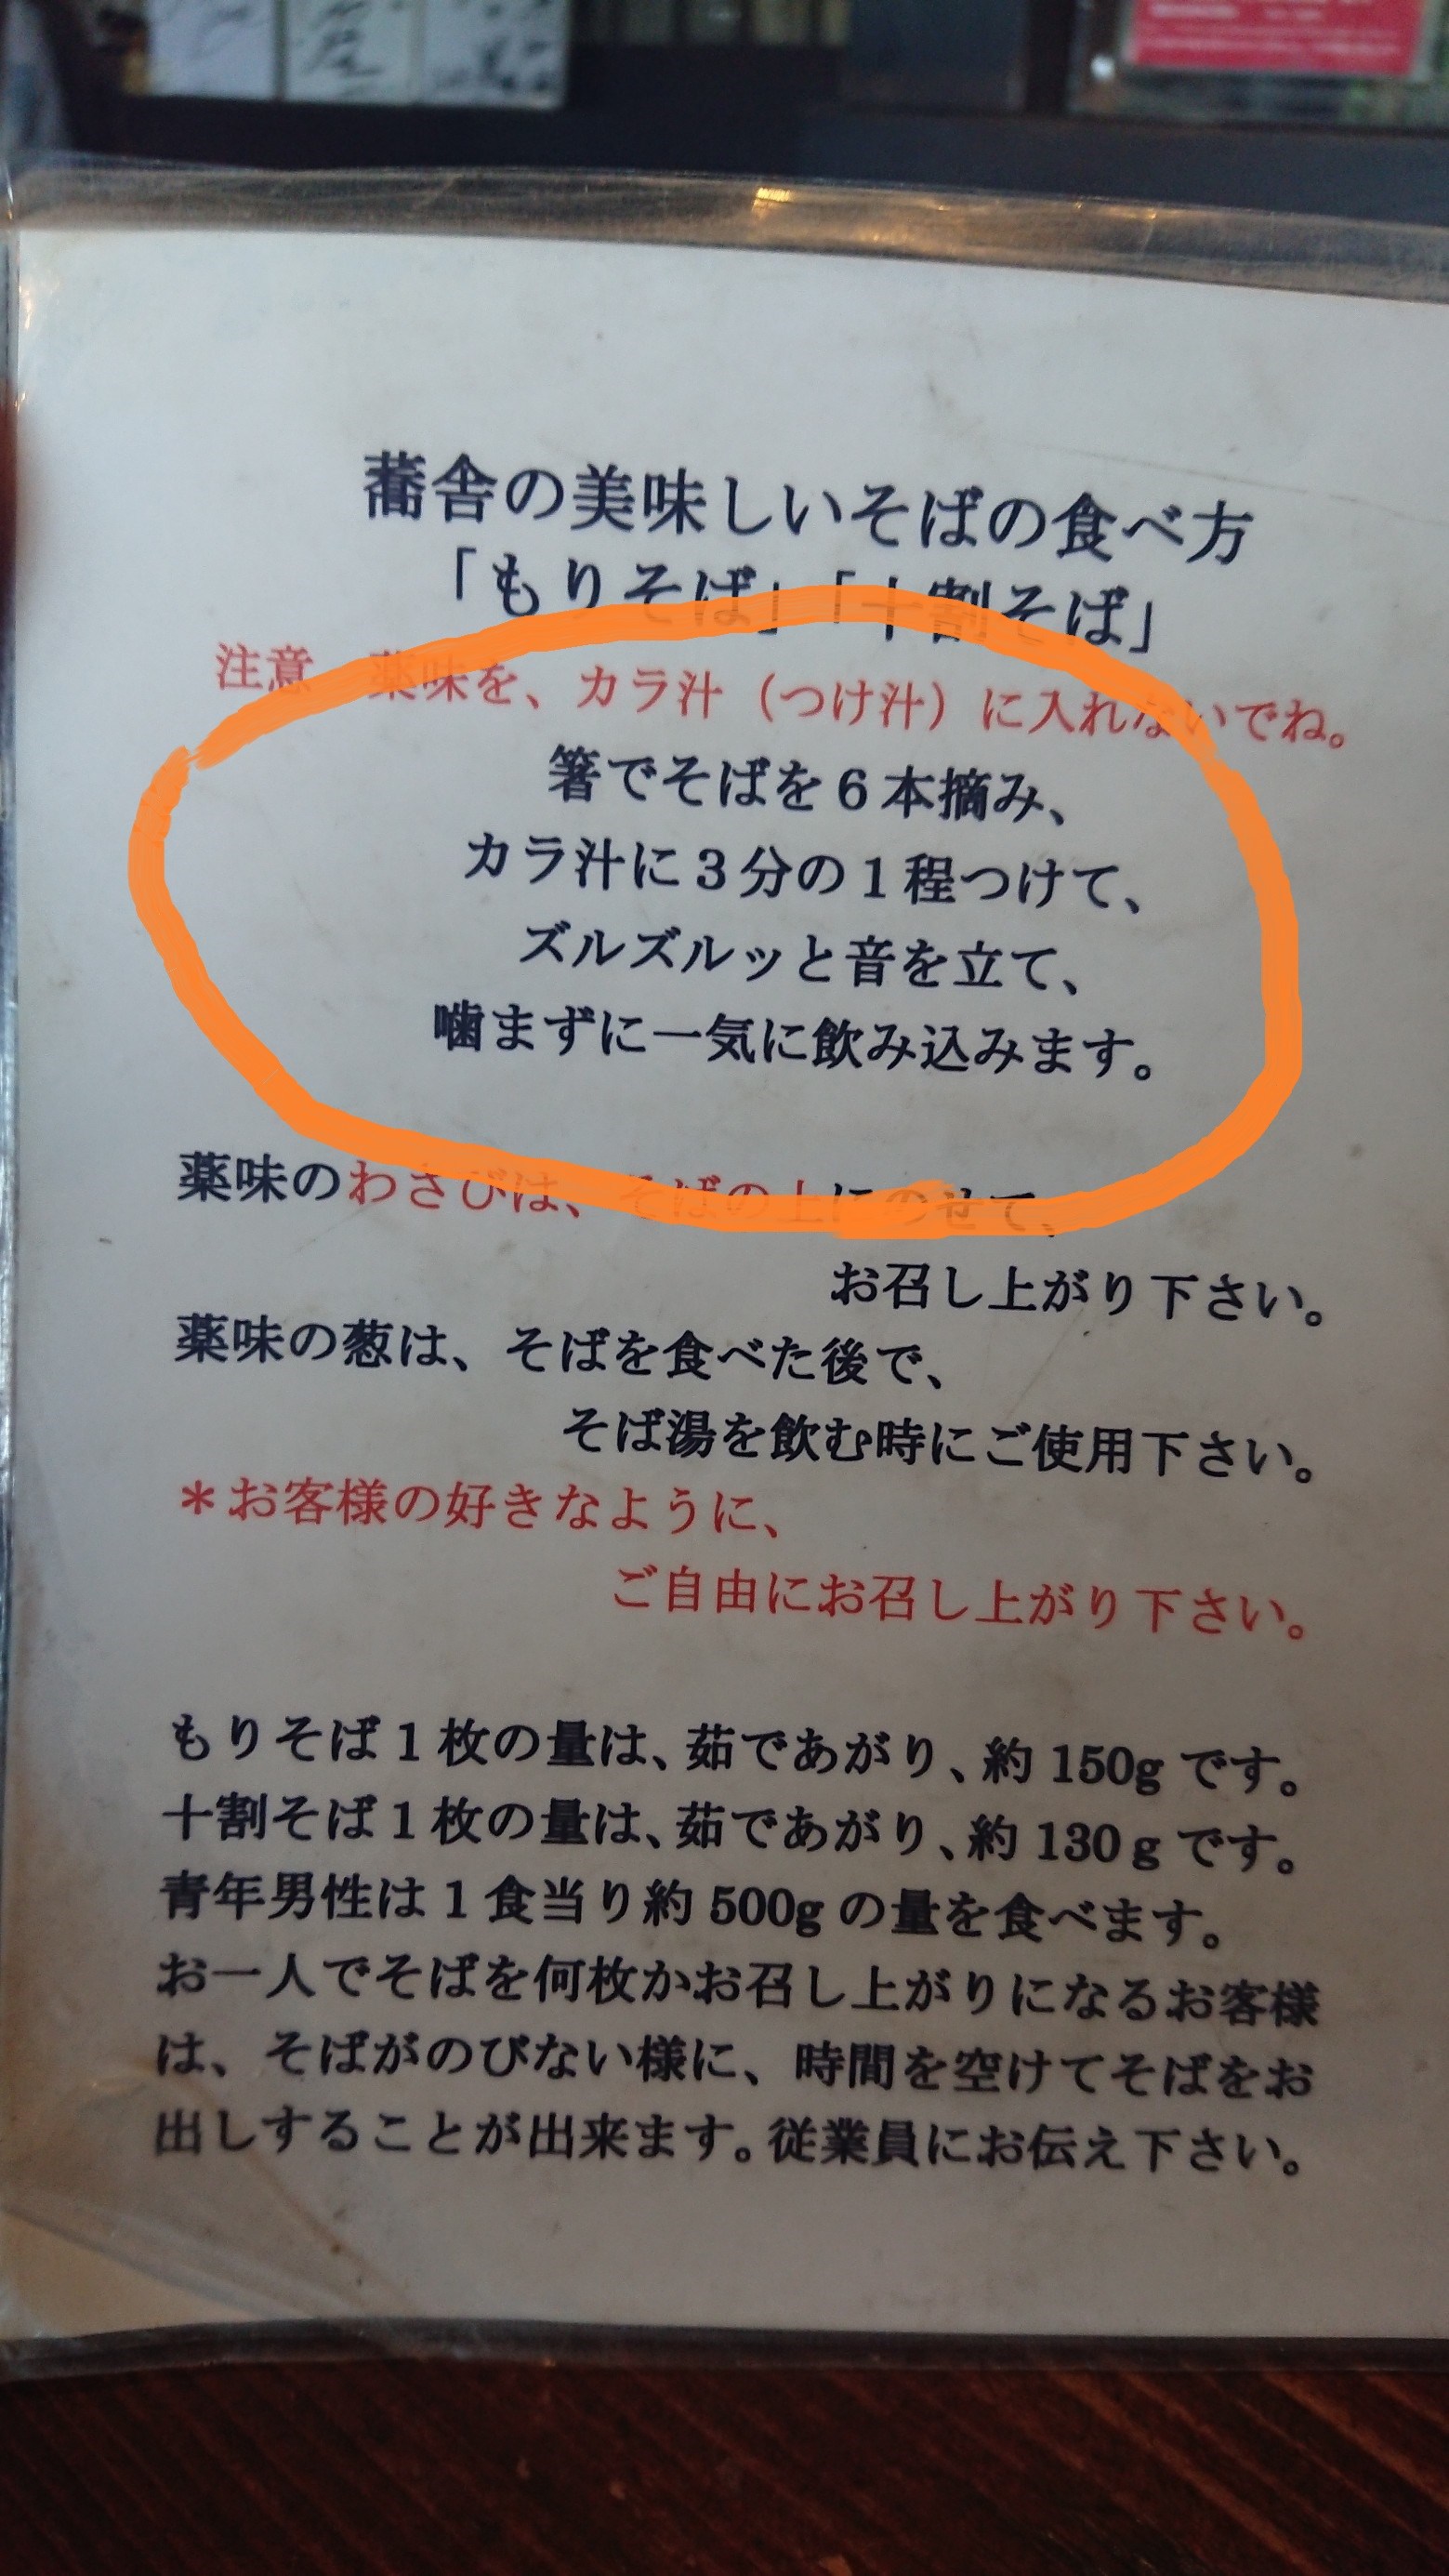 蕎舎の美味しいそばの食べ方
「もりそば」「十割そば」
注意　薬味を、カラ汁（つけ汁）に入れないでね。
箸でそばを６本摘み、
カラ汁に３分の１程つけて、
ズルズルッと音を立て、
噛まずに一気に飲み込みます。
薬味のわさびは、そばの上にのせて、
お召し上がり下さい。
薬味の葱は、そばを食べた後で、
そば湯を飲む時にご使用下さい。
＊お客様の好きなように、
ご自由にお召し上がり下さい。
もりそば１枚の量は、茹であがり、約150gです。
十割そば１枚の量は、茹であがり、約130ｇです。
青年男性は１食当り約500gの量を食べます。
お一人でそばを何枚かお召し上がりになるお客様
は、そばがのびない様に、時間を空けてそばをお
出しすることが出来ます。従業員にお伝え下さい。